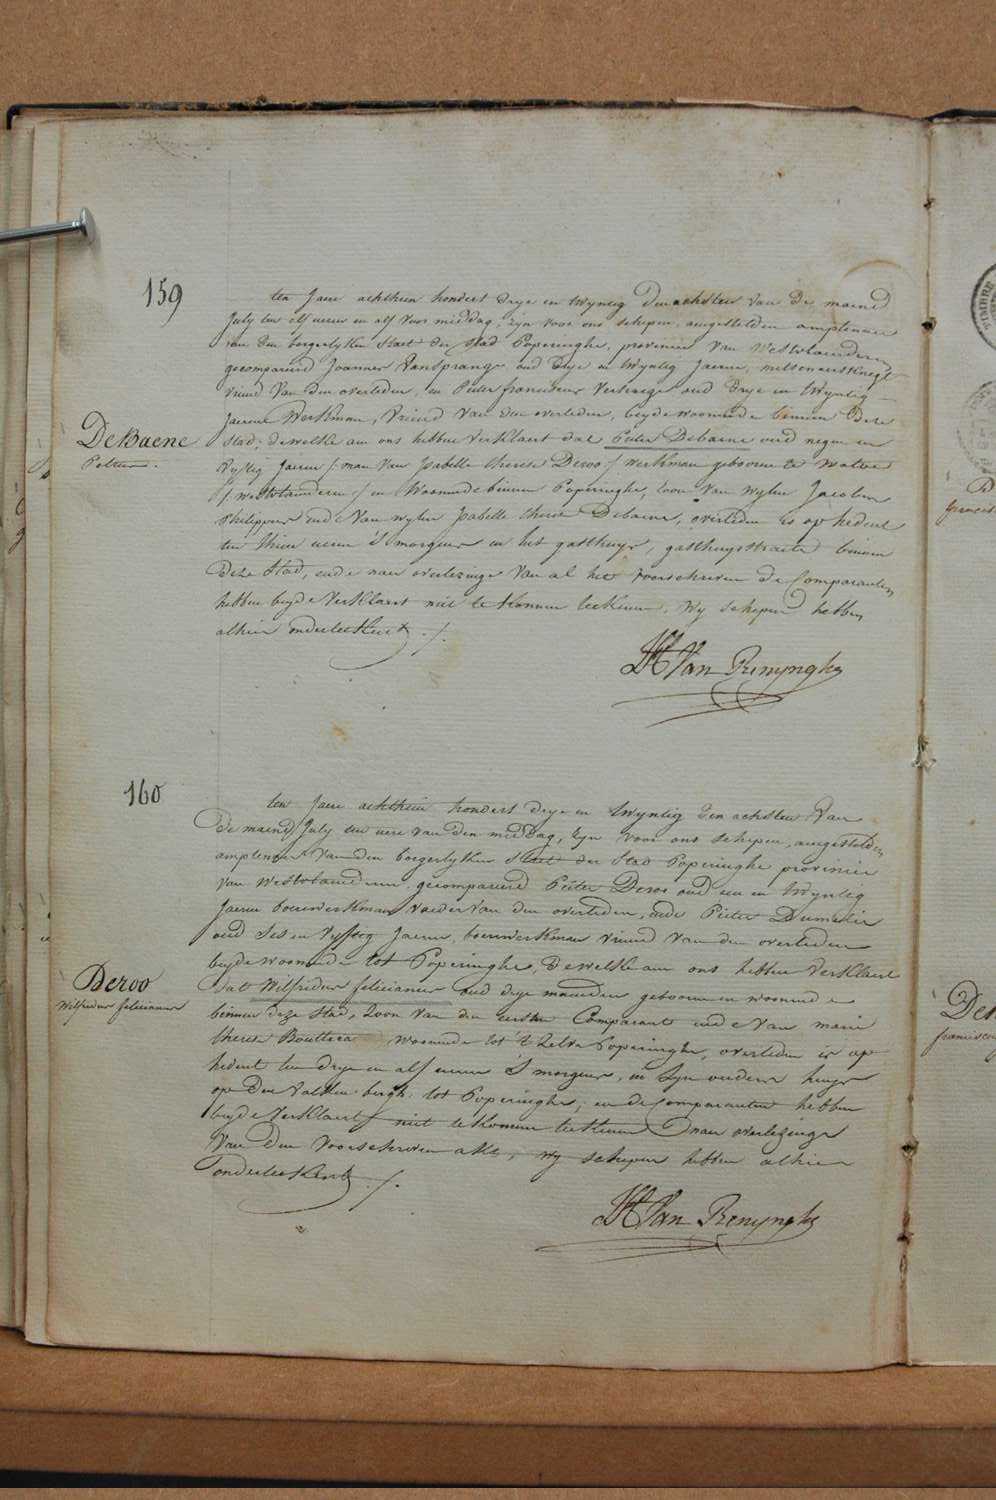 159
ten Jaere achthien hondert drye en twyntig den achsten van de maend
July ten elf ueren en alf voor middag, zyn voor ons schepen, aengestelden amptenaer
van den borgerlyken staet der stad Poperinghe, provincie van Westvlaenderen
gecompareerd Joannes Vansprange oud drye en twyntig Jaeren, metsenaersknegt
vriend van den overleden, en Pieter franciscus Verhaege oud drye en twyntig
Jaeren Werkman, vriend van den overleden, beyde woonende binnen deze
De Baene
Petrus.
stad; dewelke aen ons hebben verklaert dat Pieter Debaene oud negen en
vyftig Jaeren /: man van Isabelle therese Deroo :/ werkman geboren te watou
/: westvlaenderen :/ en Woonende binnen Poperinghe, zoon van wylen Jacobus
Philippus ende van wylen Isabelle therese Debaene, overleden is op hedent
ten thien ueren 's morgens in het gasthuys, gasthuysstraete binnen
deze stad, ende naer overlezinge van al het voorschreven de Comparanten
hebben beyde verklaert niet te konnen teekenen. Wy schepen hebben
alhier onderteekent ./.
Van Renynghe
160
ten Jaere achthien hondert drye en twyntig den achsten van
de maend July ten uere van den middag, zyn voor ons schepen, aengestelden
amptenaer van den borgerlyken staet der stad Poperinghe provincie
van Westvlaenderen, gecompareerd Pieter Deroo oud een en twyntig
Jaeren boerewerkman vaeder van den overleden, ende Pieter
oud ses en vyftig Jaeren, boerewerkman vriend van den overleden
beyde woonende tot Poperinghe, dewelke aen ons hebben verklaert
Deroo
Wilfridus felicianus
dat Wilfridus felicianus oud drye maenden geboren en woonende
binnen deze stad, zoon van den eersten Comparant ende van marie
therese woonende tot 't zelve Poperinghe, overleden is op
hedent ten drye en alf ueren 's morgens, in zyn ouders huys
op den valken bergh, tot Poperinghe, en de Comparanten hebben
beyde verklaert niet te konnen teekenen naer overlezinge
van den voorschreven akte, wy schepen hebben alhier
onderteekent ./.
Van Renynghe